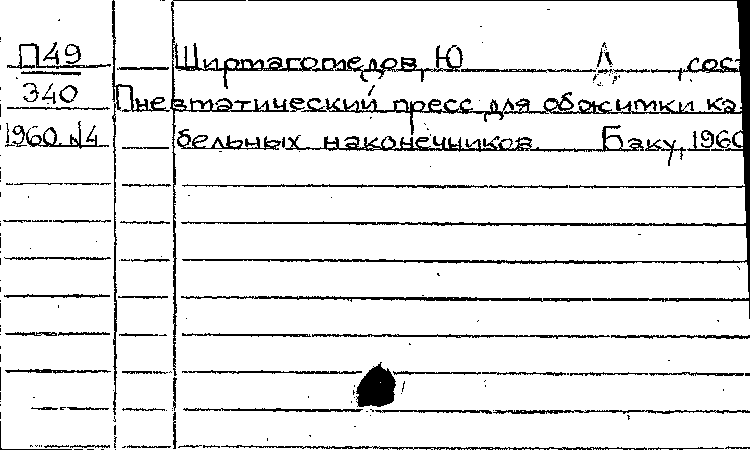 П49 Ширмагомедов, Ю А , сост
340 Пневматический пресс для обжимки ка
1960 №4 бельных наконечников. Баку, 1960